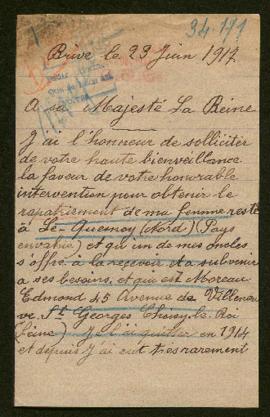 34.171
Brive le 29 Juin 1917
A sa Majesté La Reine
J'ai l'honneur de solliciter
de votre haute bienveillance
la faveur de votre honorable
intervention pour obtenir le
rapatriement de ma femme resté
à Le-Quesnoy (Nord) (Pays
envahie) et qu'un de mes oncles
s'offre à la recevoir et a subvenir
a ses besoins, et qui est Moreau
Edmond 45 Avenue de Villeneu
ve St Georges Choisy-le-Roi
(Seine) je l'ai quitter en 1914
et depuis j'ai eut très rarement